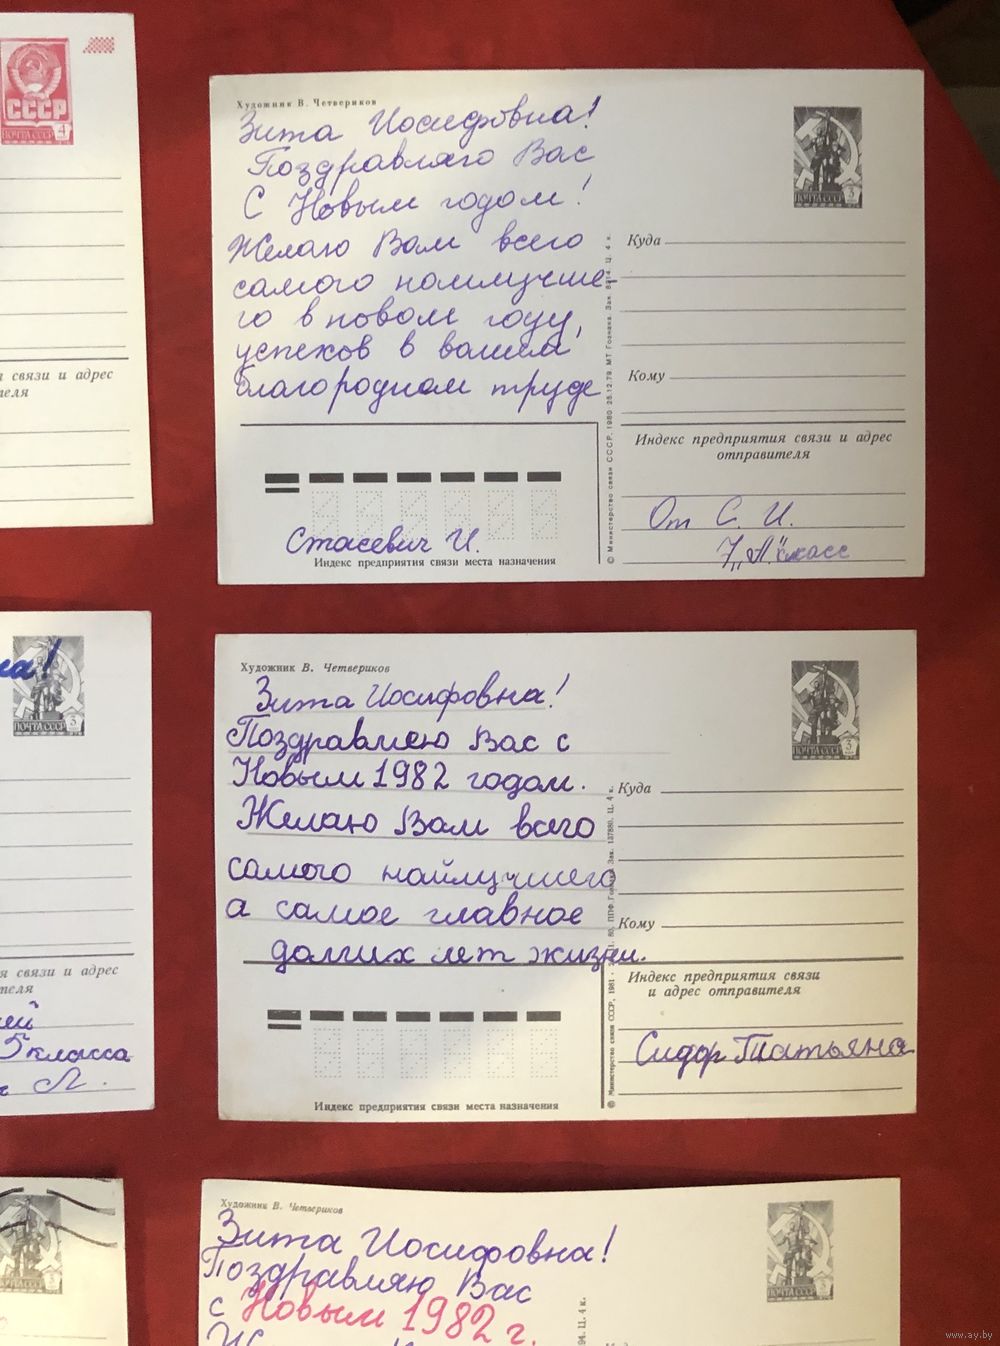 СССР
ПОЧТА СССР 4
связи и адрес
Художник В. Четвериков
Зита Иосифовна!
Поздравляю Вас
С Новым годом!
Желаю Вам всего
самого наилучше-
го в новом году,
успехов в вашем
благородном труде
ПОЧТА СССР 3
Куда
Кому
© Министерство связи СССР, 1980. 25.12.79. МТ Гознака. Зак. Ц. 4 к.
Индекс предприятия связи и адрес
отправителя
Стасевич И.
Индекс предприятия связи места назначения
От С. И.
7 „А" класс
ПОЧТА СССР 3
связи и адрес
5 класса
Л.
Художник В. Четвериков
Зита Иосифовна!
Поздравляю Вас с
Новым 1982 годом.
Желаю Вам всего
самого найлучшего
а самое главное
долгих лет жизни.
ПОЧТА СССР 3
Куда
Кому
© Министерство связи СССР, 1981. Зак. 137880. Ц. 4 к.
Индекс предприятия связи
и адрес отправителя
Сидор Татьяна
Индекс предприятия связи места назначения
Художник В. Четвериков
Зита Иосифовна!
Поздравляю Вас
с Новым 1982 г.
ПОЧТА СССР
Ц. 4 к.
www.ay.by